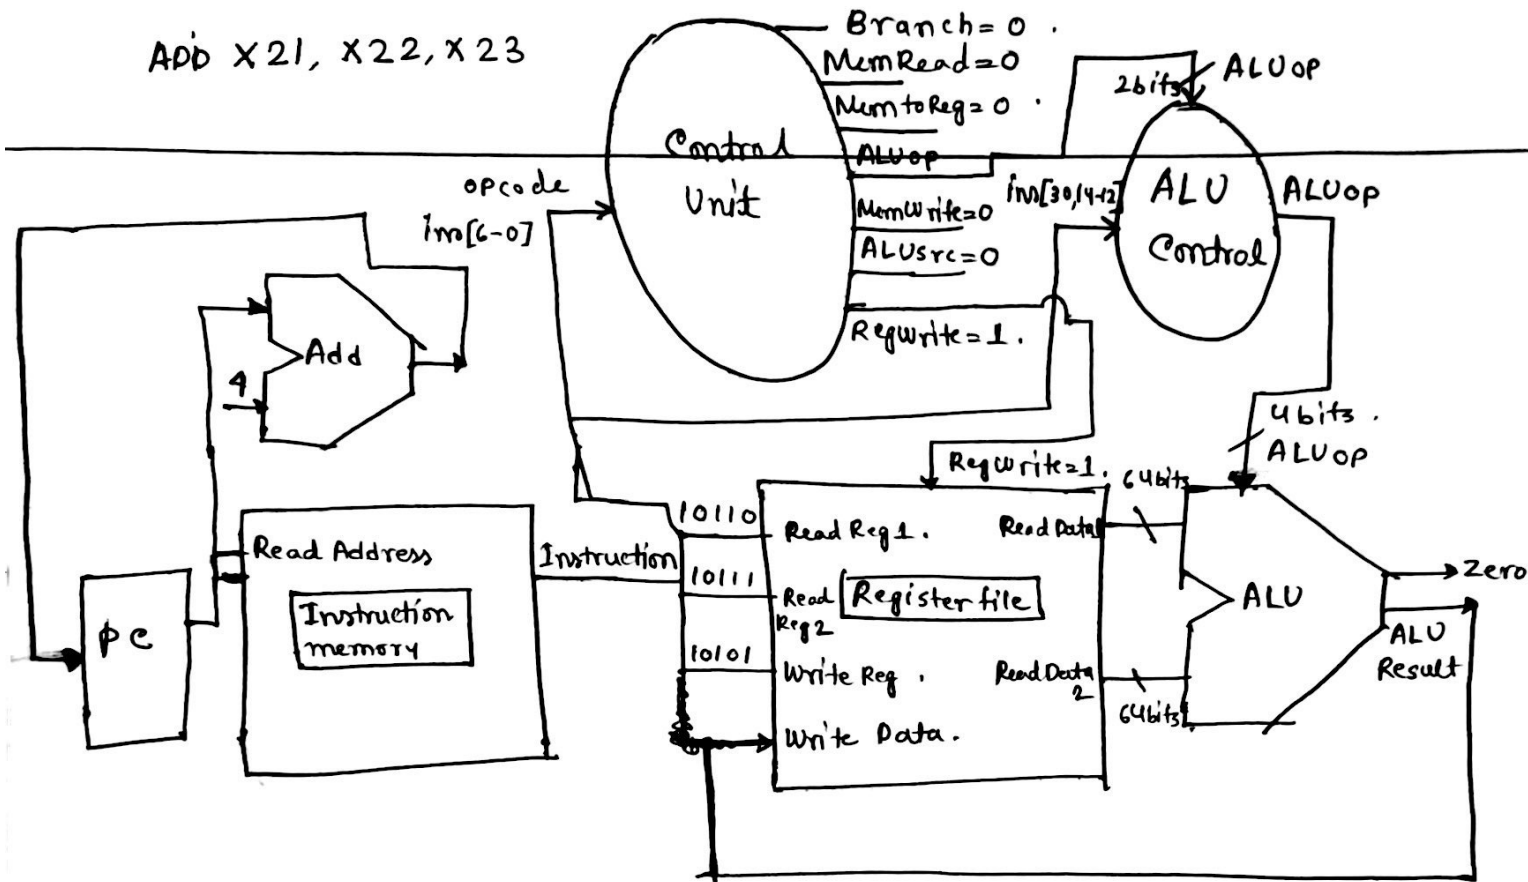 ADD X21, X22, X23
Branch=0.
MemRead=0
MemtoReg=0.
ALUop
MemWrite=0
ALUsrc=0
RegWrite=1.
Control
Unit
opcode
ins[6-0]
2bits
ALUop
ins[30,14-12]
ALU
Control
ALUop
4bits.
ALUop
Add
4
PC
Read Address
Instruction
memory
Instruction
10110
10111
10101
RegWrite=1.
Read Reg1.
Read
Reg2
Register file
Write Reg.
Write Data.
Read Data1
Read Data
2
64bits
64bits
ALU
Zero
ALU
Result